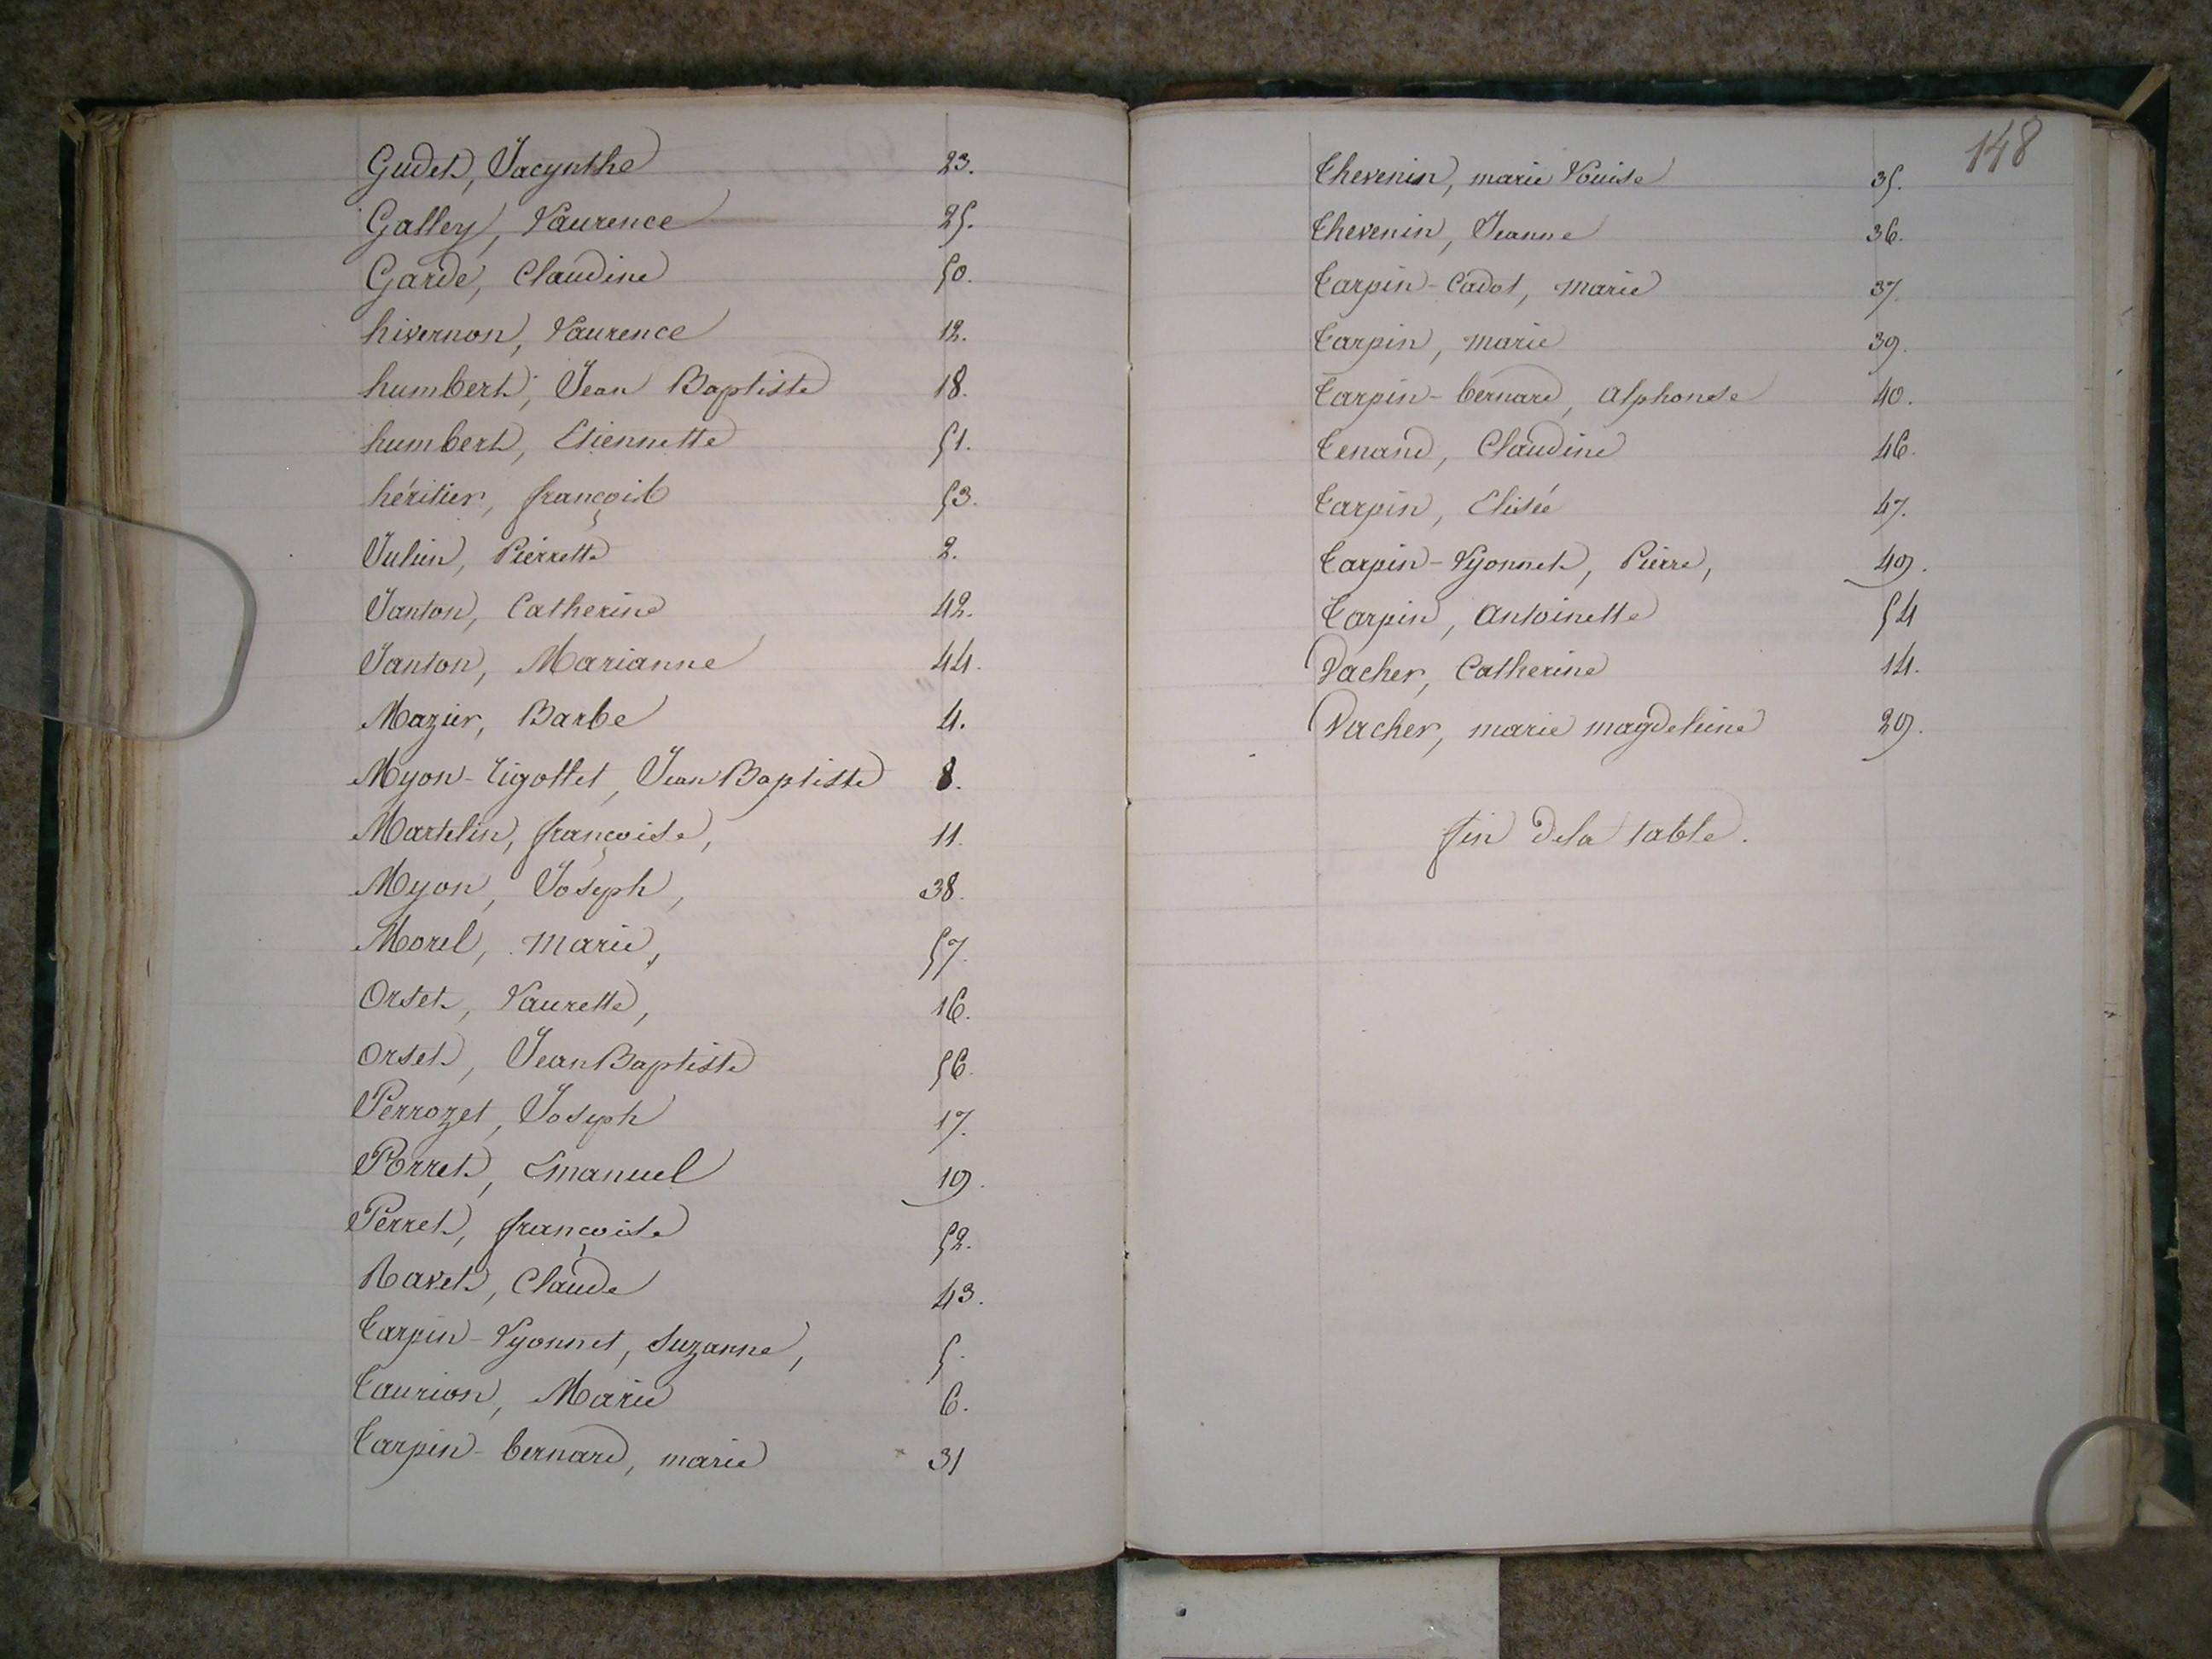 Gudet, Jacynthe 23.
Galley, Laurence 25.
Garde, Claudine 50.
hivernon, Laurence 12.
humbert, Jean Baptiste 18.
humbert, Etiennette 51.
héritier, françois 53.
Julien, Pierrette 2.
Janton, Catherine 42.
Janton, Marianne 44.
Mazier, Barbe 4.
Myon-Tigottet, Jean Baptiste 8.
Martelin, françoise, 11.
Myon, Joseph, 38.
Morel, marie, 57.
Orset, Laurette, 16.
Orset, Jean Baptiste 56.
Perrozet, Joseph 17.
Perret, Emanuel 19.
Perret, françoise 52.
Ravet, Claude 43.
Carpin-Lyonnet, Suzanne, 5.
Caurion, Marie 6.
Carpin-bernard, marie 31
148
Chevenin, marie Louise 35.
Chevenin, Jeanne 36.
Carpin-Cadot, marie 37
Carpin, marie 39.
Carpin-bernard, alphonse 40.
Cenand, Claudine 46.
Carpin, Elisée 47.
Carpin-Lyonnet, Pierre, 49.
Carpin, antoinette 54
Vacher, Catherine 14.
Vacher, marie magdeleine 29.
fin dela table.